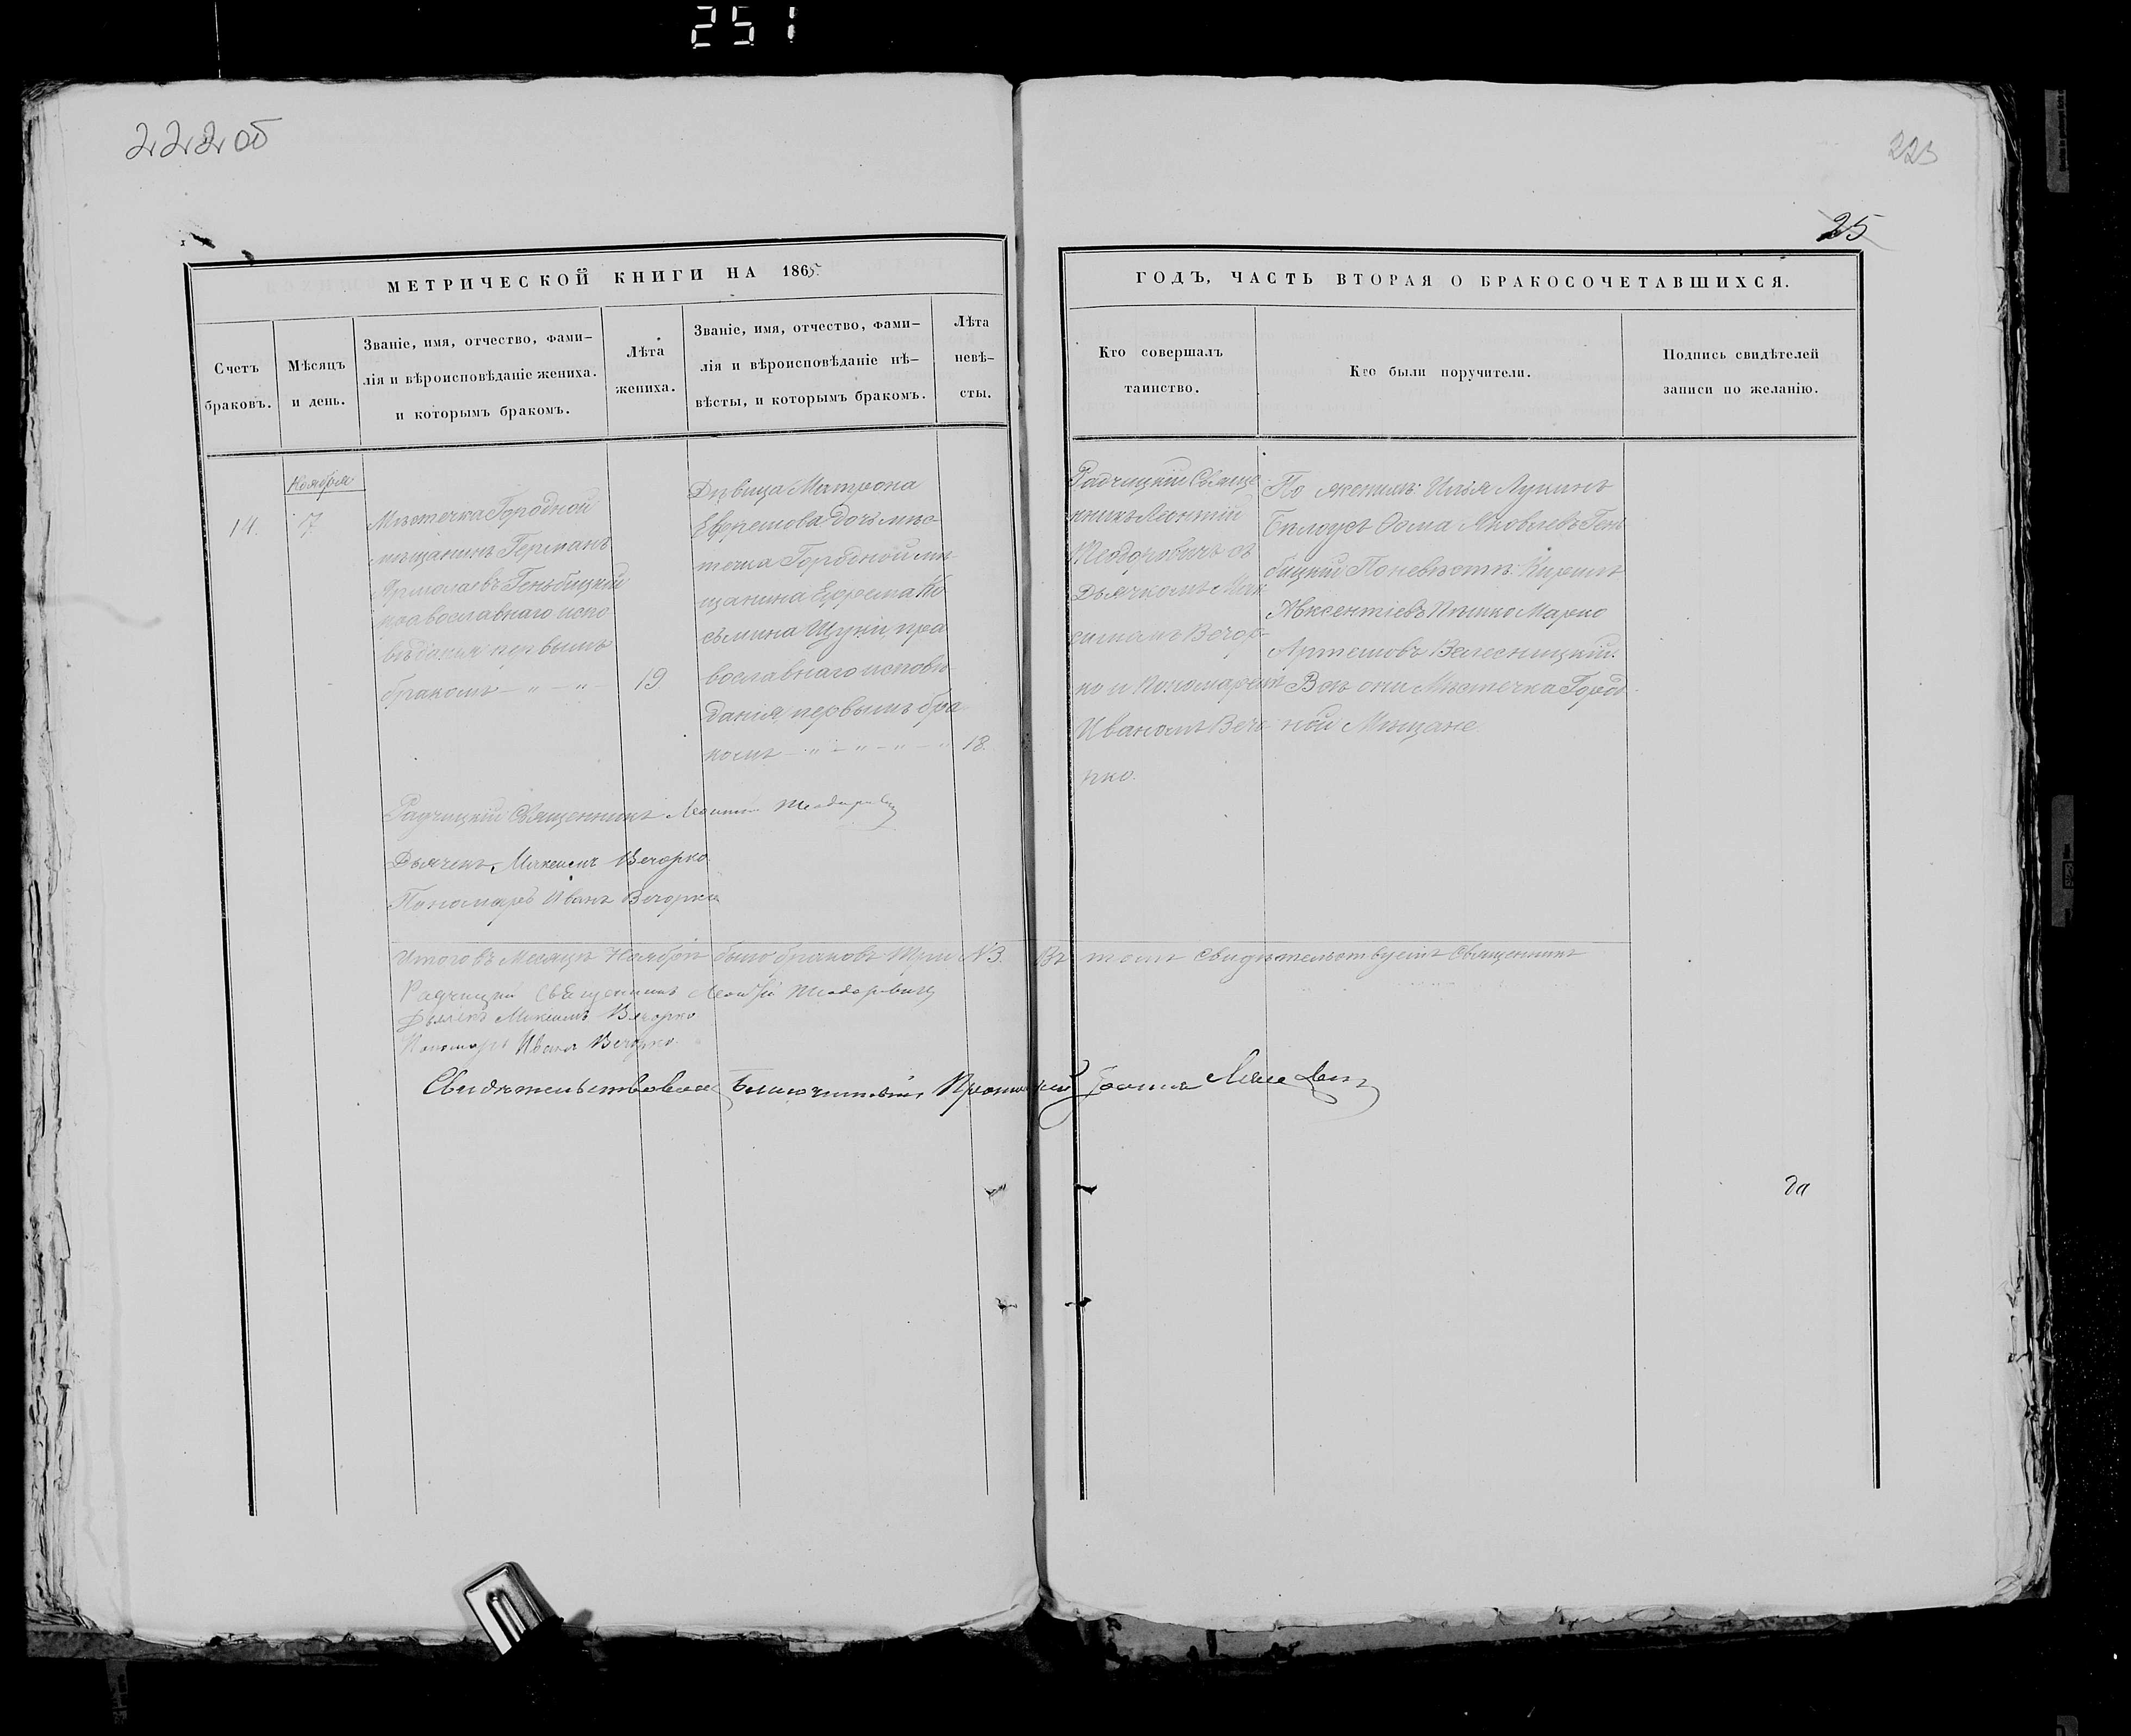 251
222 об
223
25
МЕТРИЧЕСКОЙ КНИГИ НА 1865
ГОДЪ, ЧАСТЬ ВТОРАЯ О БРАКОСОЧЕТАВШИХСЯ.
Счетъ
браковъ.
Мѣсяцъ
и день.
Званіе, имя, отчество, фами-
лія и вѣроисповѣданіе жениха.
и которымъ бракомъ.
Лѣта
жениха.
Званіе, имя, отчество, фами-
лія и вѣроисповѣданіе нѣ-
вѣсты, и которымъ бракомъ.
Лѣта
невѣ-
сты.
Кто совершалъ
таинство.
Кто были поручители.
Подпись свидѣтелей
записи по желанію.
14.
Ноября
17
Мѣстечка Городной
мѣщанинъ Германъ
Ярмолаевъ Геньбицкій
православнаго испо
вѣданія первымъ
бракомъ — " — " —
19
Дѣвица Матрона
Ефремова дочь мѣс-
течка Городной мѣ-
щанина Ефрема Ко
сьмина Щуки, пра
вославнаго исповѣ-
данія, первымъ бра
комъ — " — " — " — "
18.
Радчицкій Свяще-
нникъ Леонтій
Теодоровичъ съ
Дьячкомъ Мак
симомъ Вечор-
ко и Пономаремъ
Иваномъ Вечо
рко.
По женихѣ: Илья Лукинъ
Бѣлоусъ Ѳома Яковлевъ Гень
бицкій По невѣстѣ: Кириллъ
Авксентіевъ Пашко Марко
Артемовъ Велесницкій.
Всѣ они Мѣстечка Город
ной Мѣщане.
Радчицкій Священникъ Леонтій Теодоровичъ
Дьячекъ Максимъ Вечорко.
Пономарь Иванъ Вечорко
Итого въ Месяцѣ Ноябрѣ было браковъ три N 3. Въ томъ свидѣтельствуетъ Священникъ
Радчицкій Священникъ Леонтій Теодоровичъ
Дьячекъ Максимъ Вечорко
Пономарь Иванъ Вечорко.
Свидѣтельствовалъ Благочинный, Протоіерей Іоаннъ